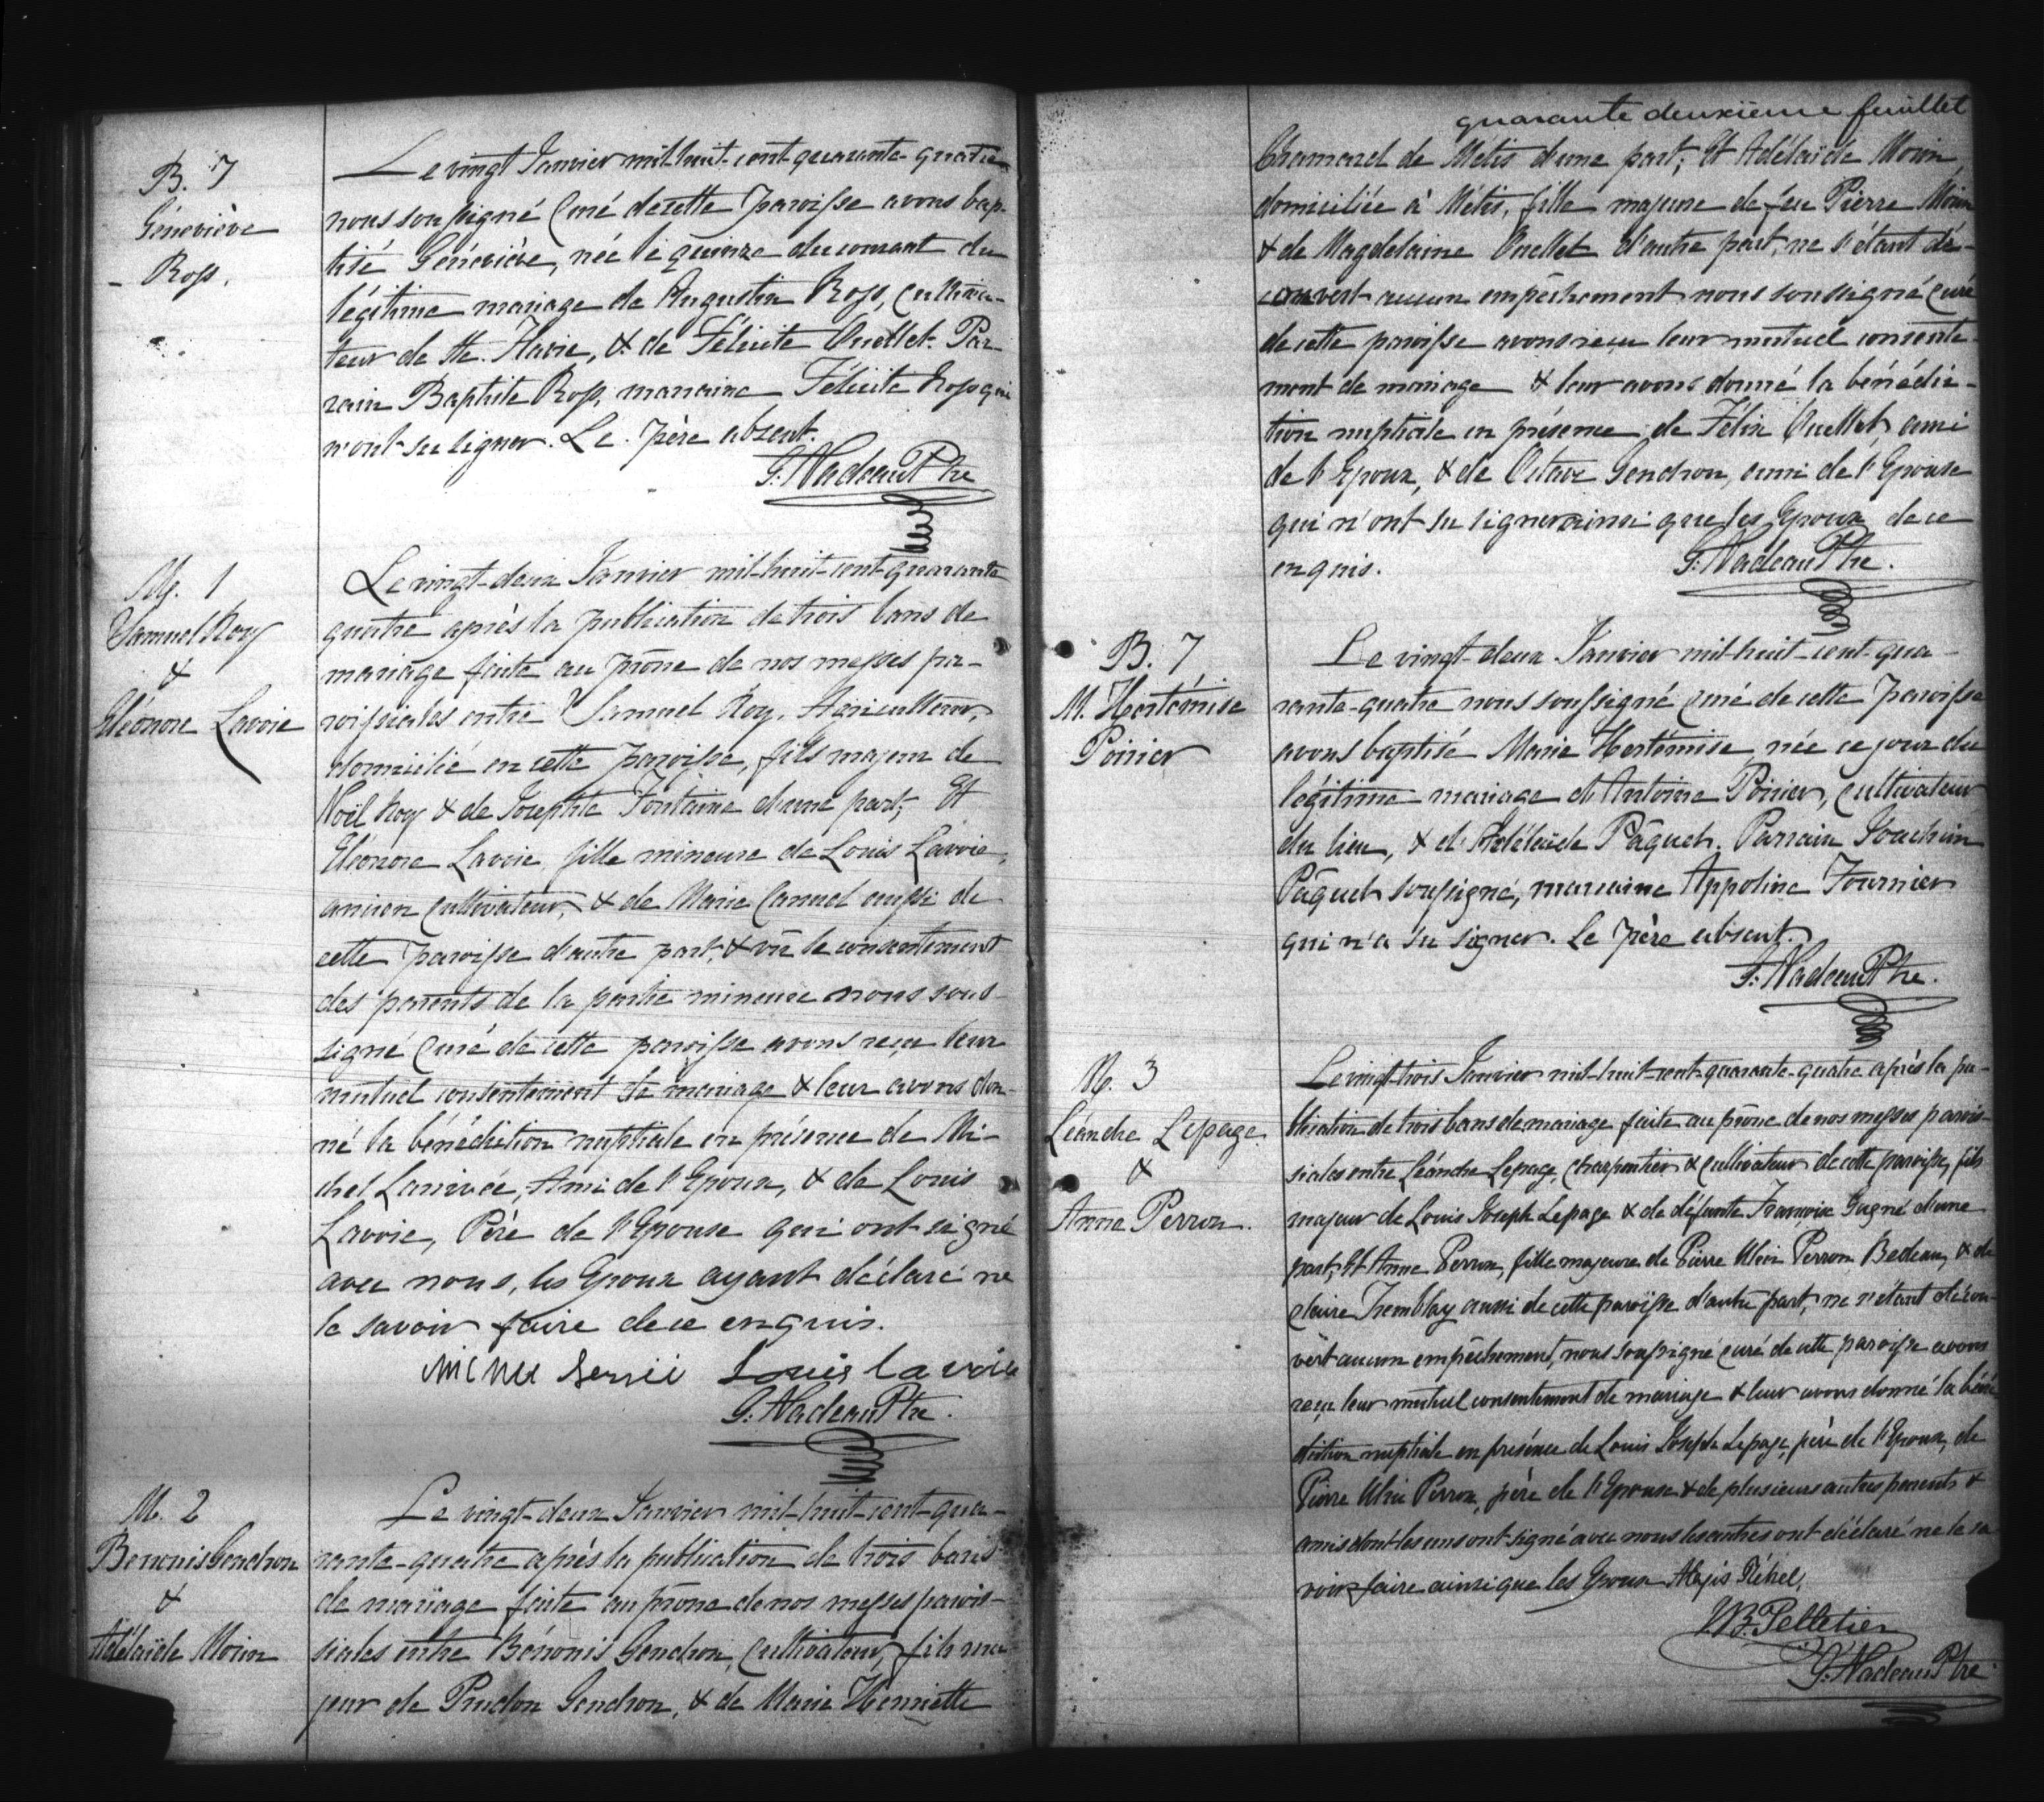 B. 7
Géneviève
Ross.
Le vingt Janvier mil-huit-cent-quarante-quatre
nous soussigné Curé de cette paroisse avons bap-
tisé Géneviève, née le quinze du courant du
légitime mariage de Augustin Ross, Cultiva-
teur de Ste. Flavie, & de Félicité Ouellet. Par-
rain Baptiste Ross, marraine Félicité Ross qui
n'ont su signer. Le père absent.
G. Nadeau Ptre
M. 1
Samuel Roy
&
Eléonore Lavoie
Le vingt-deux Janvier mil-huit-cent-quarante
quatre après la publication de trois bans de
mariage faite au prône de nos messes pa-
roissiales entre Samuel Roy, Agriculteur,
domicilié en cette paroisse, fils majeur de
Noël Roy & de Josephte Fontaine d'une part; Et
Eléonore Lavoie fille mineure de Louis Lavoie,
ancien Cultivateur, & de Marie Canuel aussi de
cette paroisse d'autre part, & vu le consentement
des parents de la partie mineure nous sous-
signé Curé de cette paroisse avons reçu leur
mutuel consentement de mariage & leur avons don-
né la bénédiction nuptiale en présence de Mi-
chel Larrivée, Ami de l'Epoux, & de Louis
Lavoie, Père de l'Epouse qui ont signé
avec nous, les Epoux ayant déclaré ne
le savoir faire de ce enquis.
Louis lavoie
G. Nadeau Ptre.
M. 2
Benonis Gendron
&
Adélaïde Morin
Le vingt-deux Janvier mil-huit-cent-qua-
rante-quatre après la publication de trois bans
de mariage faite au prône de nos messes parois-
siales entre Bénonis Gendron, Cultivateur, fils ma-
jeur de Prudon Gendron, & de Marie Henriette
quarante deuxième feuillet
Chamard de Métis d'une part; Et Adélaïde Morin
domiciliée à Métis, fille majeure de feu Pierre Morin
& de Magdelaine Ouellet d'autre part, ne s'étant dé-
couvert aucun empêchement nous soussigné Curé
de cette paroisse avons reçu leur mutuel consente-
ment de mariage & leur avons donné la bénédic-
tion nuptiale en présence de Félix Ouellet, ami
de l'Epoux, & de Octave Gendron, ami de l'Epouse
qui n'ont su signer ainsi que les Epoux de ce
enquis.
G. Nadeau Ptre.
B. 7
M. Hertémise
Poirier
Le vingt-deux Janvier mil-huit-cent-qua-
rante-quatre nous soussigné Curé de cette paroisse
avons baptisé Marie Hertémise, née ce jour du
légitime mariage d'Antoine Poirier, Cultivateur
du lieu, & d'Adélaïde Pâquet. Parrain Joachim
Pâquet soussigné, marraine Appoline Fournier
qui n'a su signer. Le père absent.
G. Nadeau Ptre.
M. 3
Léandre Lepage
&
Anne Perron.
Le vingt-trois Janvier mil-huit-cent-quarante-quatre après la pu-
blication de trois bans de mariage faite au prône de nos messes parois-
siales entre Léandre Lepage, Charpentier & Cultivateur de cette paroisse, fils
majeur de Louis Joseph Lepage & de défunte Françoise Gagné d'une
part; Et Anne Perron, fille majeure de Pierre Perron, Bedeau, & de
Claire Tremblay aussi de cette paroisse d'autre part, ne s'étant décou-
vert aucun empêchement, nous soussigné Curé de cette paroisse avons
reçu leur mutuel consentement de mariage & leur avons donné la béné-
diction nuptiale en présence de Louis Joseph Lepage, père de l'Epoux, de
Pierre Perron, père de l'Epouse & de plusieurs autres parents &
amis dont les uns ont signé avec nous les autres ont déclaré ne le sa
voir faire ainsi que les Epoux Alexis Réhel,
J.B. Pelletier
G. Nadeau Ptre